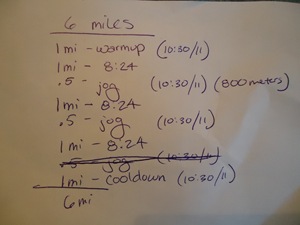 6 miles
1mi - warmup (10:30/11)
1mi - 8:24
.5 - jog (10:30/11) (800 meters)
1mi - 8:24
.5 - jog (10:30/11)
1mi - 8:24
.5 - jog (10:30/11)
1mi - cooldown (10:30/11)
6mi